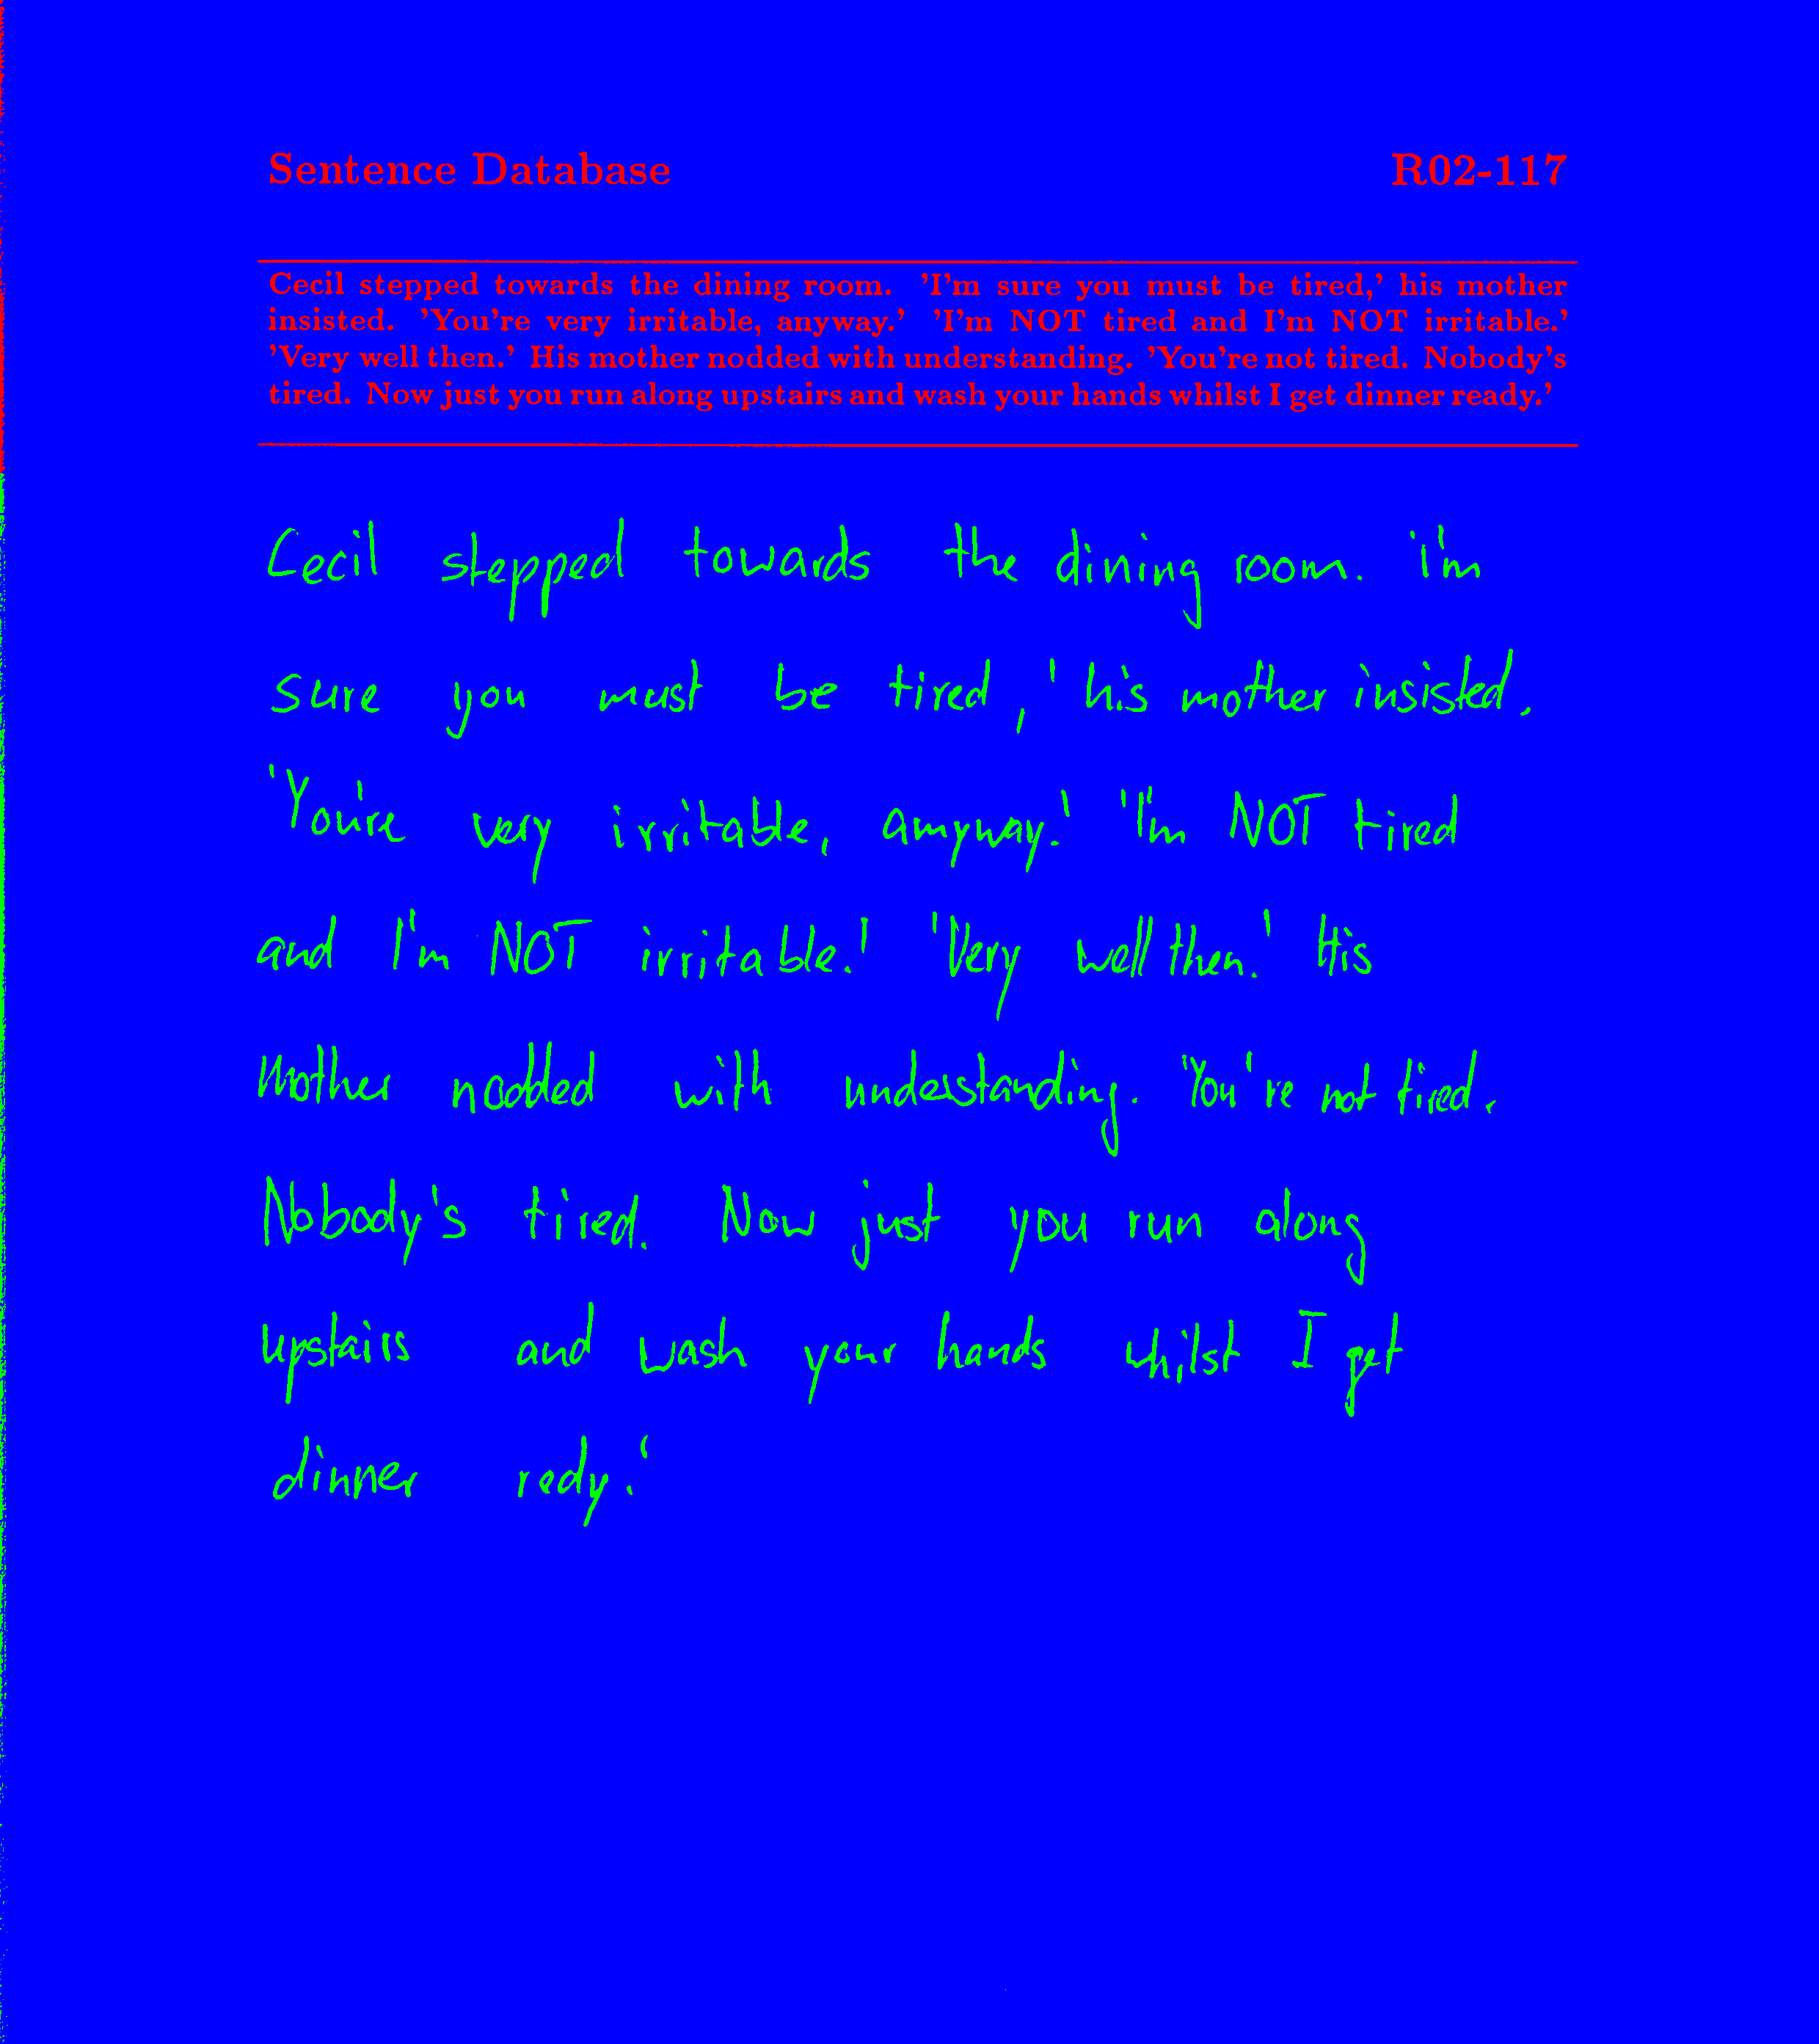 Sentence Database R02-117
Cecil stepped towards the dining room. 'I'm sure you must be tired,' his mother
insisted. 'You're very irritable, anyway.' 'I'm NOT tired and I'm NOT irritable.'
'Very well then.' His mother nodded with understanding. 'You're not tired. Nobody's
tired. Now just you run along upstairs and wash your hands whilst I get dinner ready.'
Cecil stepped towards the dining room. 'I'm
sure you must be tired,' his mother insisted.
'You're very irritable, anyway.' 'I'm NOT tired
and I'm NOT irritable.' 'Very well then.' His
mother nodded with understanding. 'You're not tired.
Nobody's tired. Now just you run along
upstairs and wash your hands whilst I get
dinner redy.'